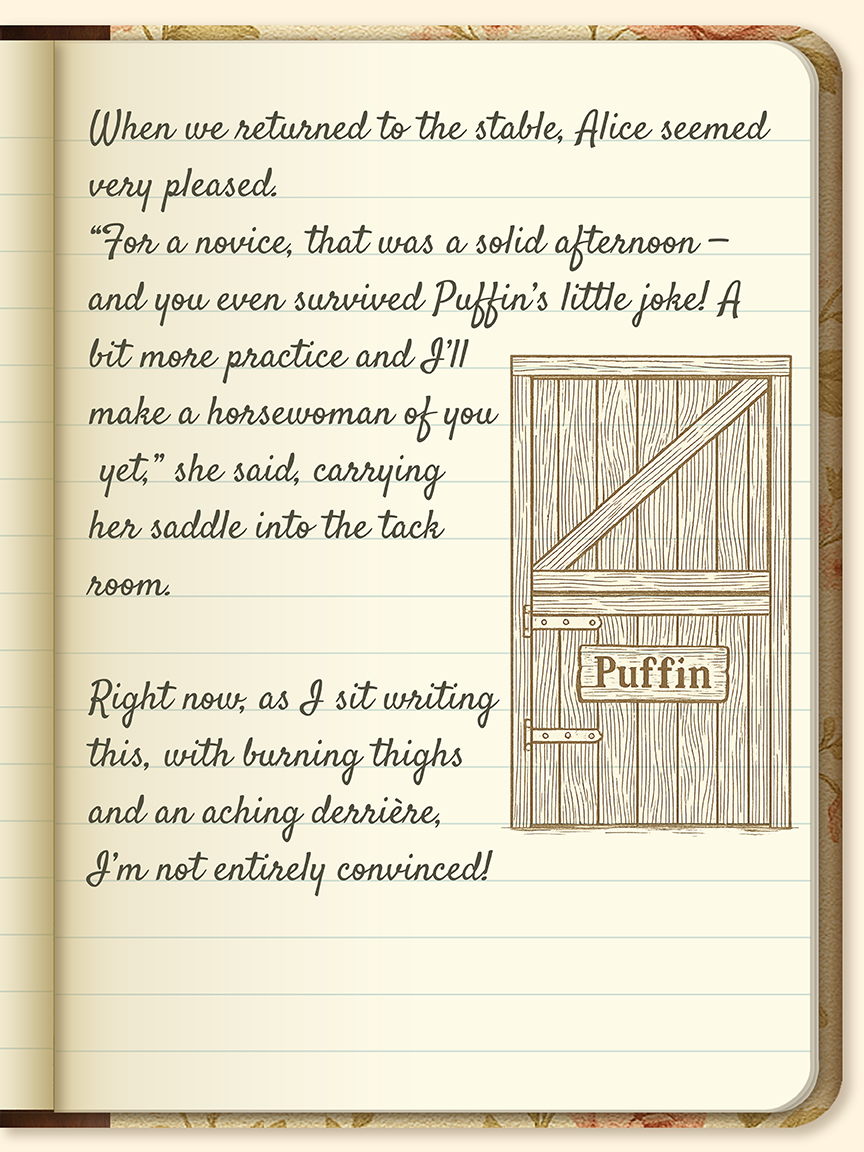 When we returned to the stable, Alice seemed
very pleased.
“For a novice, that was a solid afternoon –
and you even survived Puffin’s little joke! A
bit more practice and I’ll
make a horsewoman of you
yet,” she said, carrying
her saddle into the tack
room.
Puffin
Right now, as I sit writing
this, with burning thighs
and an aching derrière,
I’m not entirely convinced!